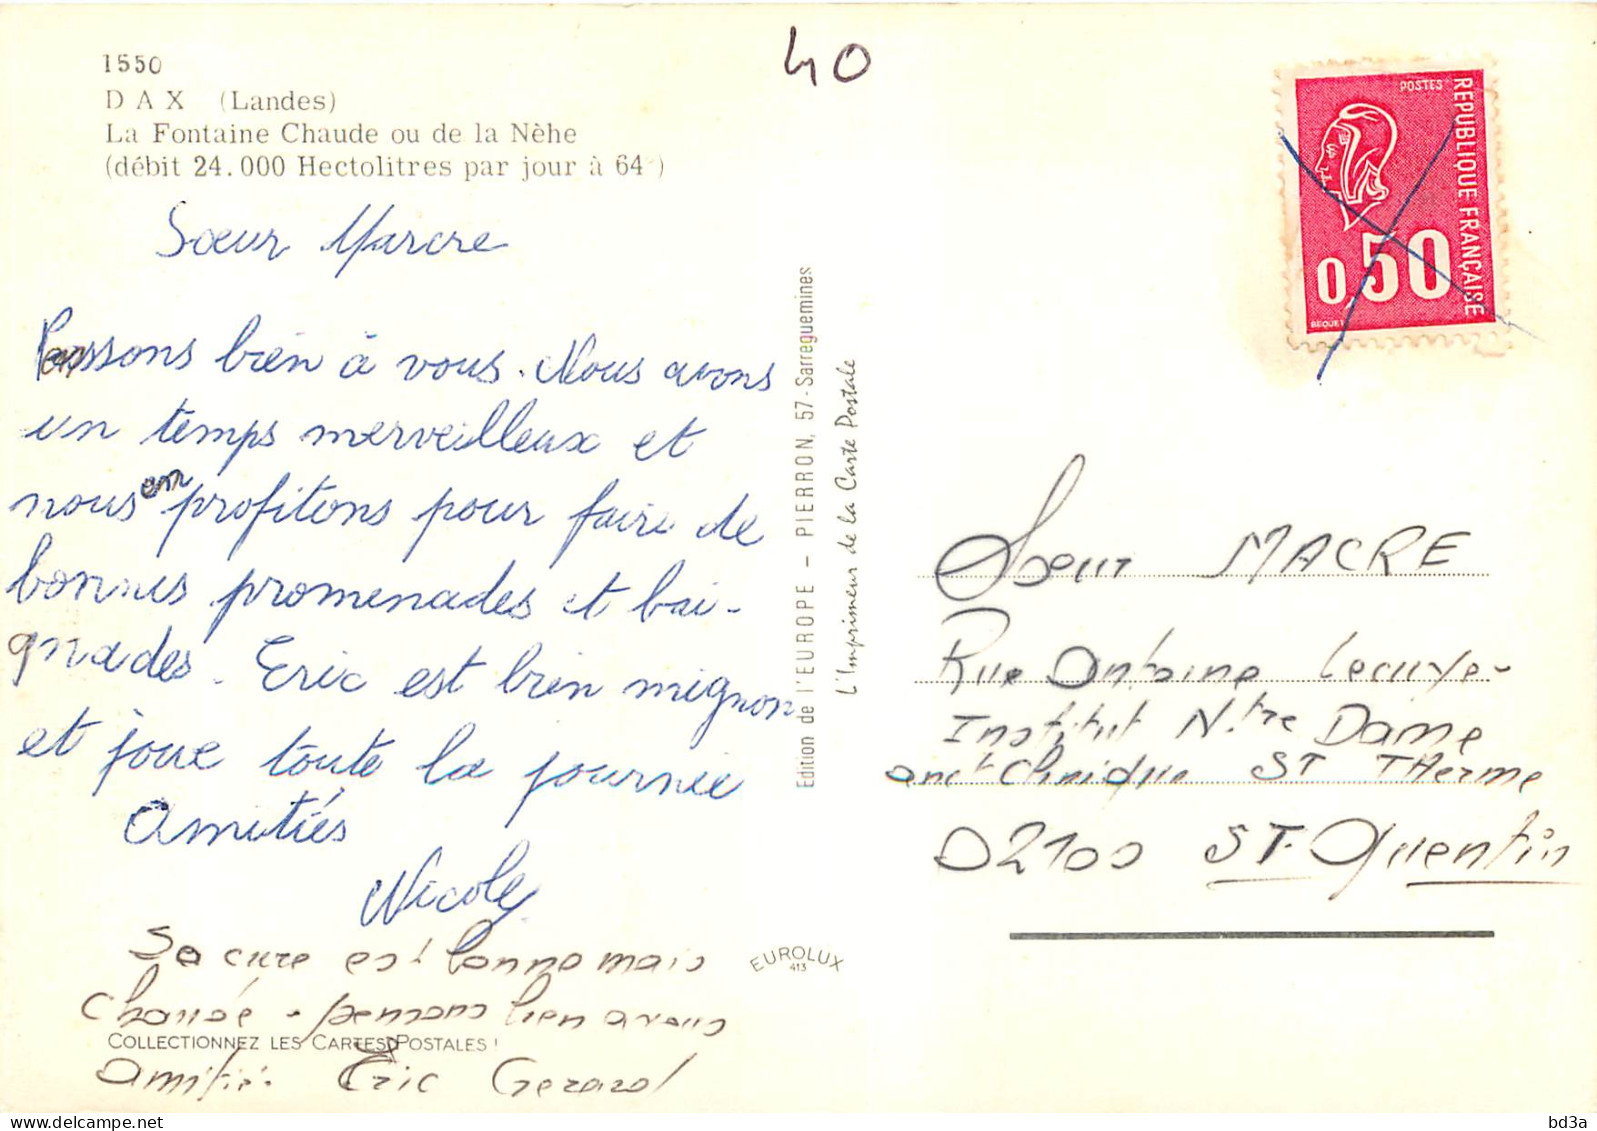 40
1550
DAX (Landes)
La Fontaine Chaude ou de la Nèhe
(débit 24.000 Hectolitres par jour à 64°)
Sœur Marcre
Penssons bien à vous. Nous avons
un temps merveilleux et
nous en profitons pour faire de
bonnes promenades et bai-
gnades. Eric est bien mignon
et joue toute la journée
Amitiés
Nicole
Sa cure est bonne mais
chaude - pensons bien a vous
COLLECTIONNEZ LES CARTES POSTALES !
Amitié. Eric Gerard
Edition de l'EUROPE - PIERRON, 57-Sarreguemines
L'Imprimeur de la Carte Postale
EUROLUX
413
POSTES
REPUBLIQUE FRANÇAISE
0,50
BEQUET
Soeur MACRE
Rue Antoine Lecuye-
Institut Ntre Dame
anct Clinique ST THerme
02100 ST-Quentin
bd3a